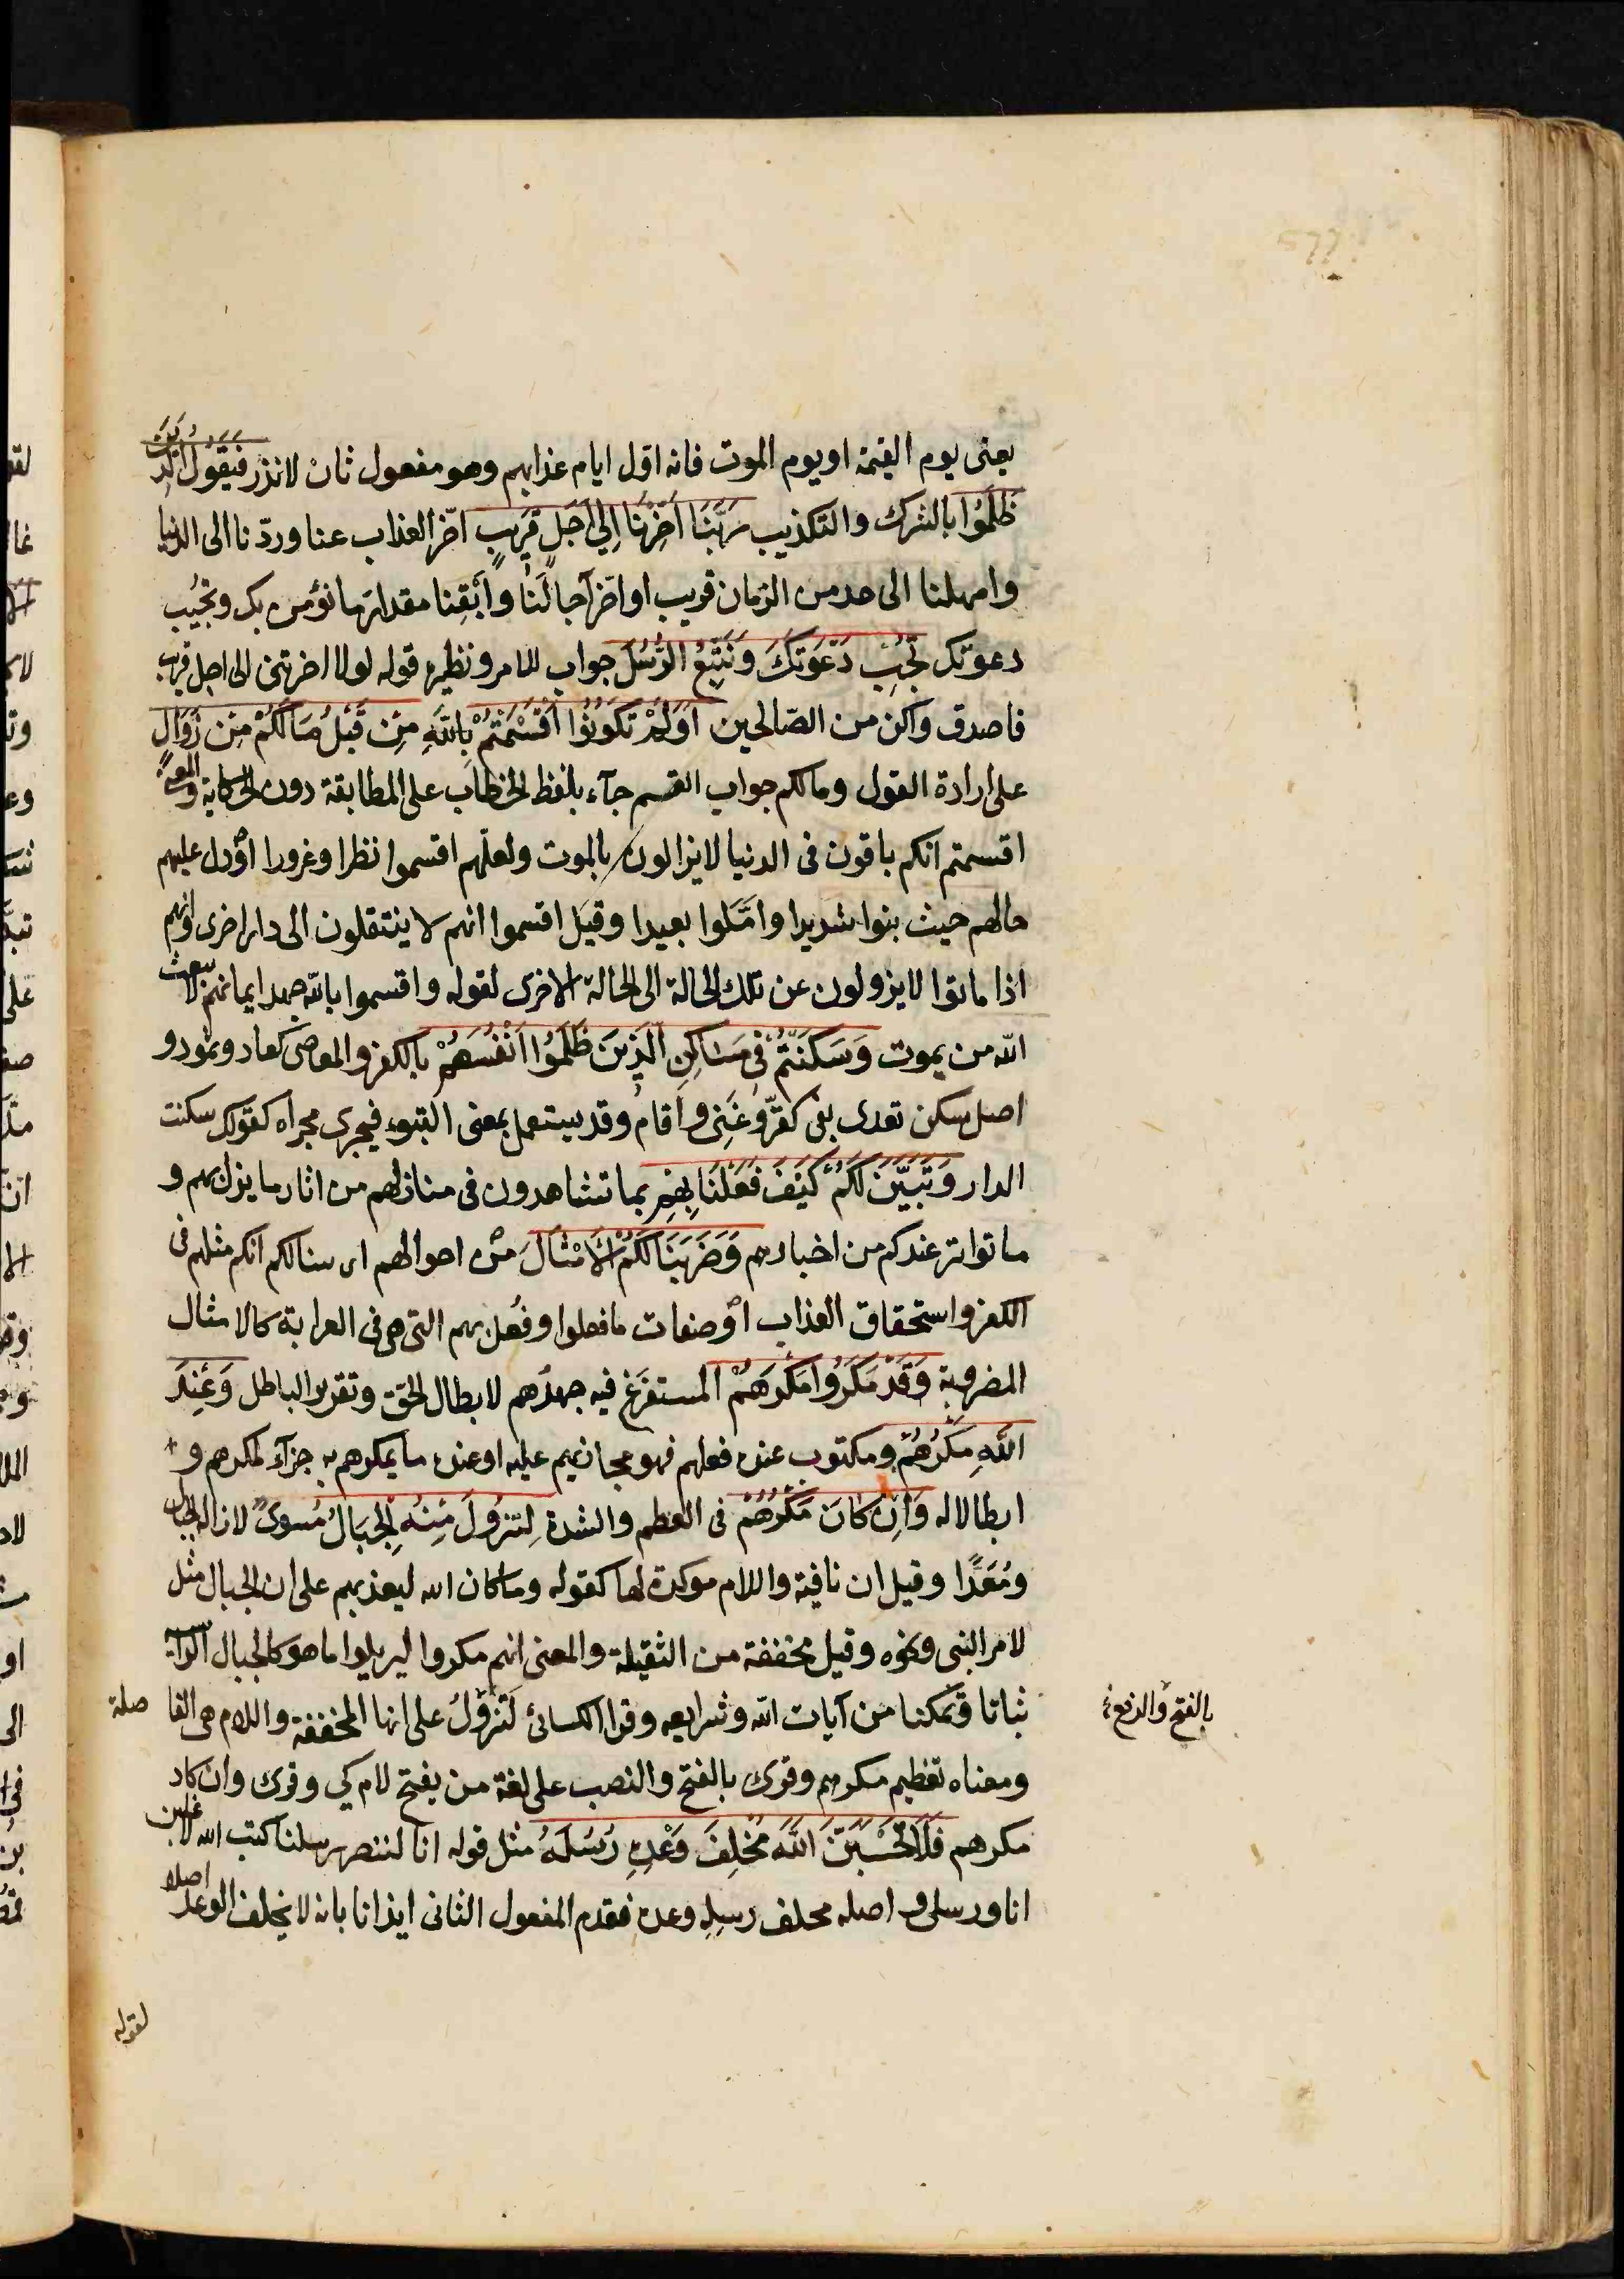 يعنى يوم القيمة او يوم الموت فانه اول ايام عذابهم وهو مفعول ثان لانذر فَيَقُولُ الَّذِينَ
ظَلَمُوا بالشرك والتكذيب رَبَّنَا اَخِّرْنَا اِلٰى اَجَلٍ قَرِيبٍ اخّر العذاب عنا وردّنا الى الدنيا
وامهلنا الى حد من الزمان قريب او اخّر آجالَنا وأَبْقِنا مقدار ما نؤمن بك ونجيُب
دعوتك نُجِبْ دَعْوَتَكَ وَنَتَّبِعْ الرُّسُلَ جواب للامر ونظيره قوله لولا اخرتنى الى اجل قريب
فاصدق واكن من الصّالحين اَوَلَمْ تَكُونُوا اَقْسَمْتُمْ بِاللّٰهِ مِنْ قَبْلُ مَالَكُمْ مِنْ زَوَالٍ
على ارادة القول وما لكم جواب القسم جآء بلفظ الخطاب على المطابقة دون الحكاية والمعنى
اقسمتم انكم باقون فى الدنيا لا يزالون بالموت ولعلّهم اقسموا نظرا وغرورا اوْ دل عليهم
حالهم حيث بنوا شديدا وامّلوا بعيدا وقيل اقسموا انهم لا ينتقلون الى دار اخرى وانهم
اذا ماتوا لا يزولون عن تلك الحالة الى الحالة الاخرى لقوله واقسموا باللّه جهد ايمانهم لا يبعث
اللّه من يموت وَسَكَنْتُمْ فِى مَسَاكِنِ الَّذِينَ ظَلَمُوا اَنْفُسَهُمْ بالكفر والمعاصى كعاد وثمود و
اصل سكن تعدى بفى كقرّ وغَنِى واَقام وقد يستعمل بمعنى التبوء فيجرى مجراه كقولك سكنت
الدار وَتَبَيَّنَ لَكُمْ كَيْفَ فَعَلْنَا بِهِمْ بما تشاهدون فى منازلهم من اثار ما نزل بهم و
ما تواتر عندكم من اخبارهم وَضَرَبْنَا لَكُمُ الْاَمْثَالَ من احوالهم اى بينا لكم انكم مثلهم فى
الكفر واستحقاق العذاب اوْ صفات ما فعلوا وفُعل بهم التى هى فى الغرابة كالامثال
المضروبة وَقَدْ مَكَرُوا مَكْرَهُمْ المستفرَغ فيه جهدُهم لابطال الحقّ وتقرير الباطل وَعِنْدَ
اللّٰهِ مَكْرُهُمْ ومكتوب عنده فعلهم فهو مجازيهم عليه او عنده ما يمكرهم به جزآء لمكرهم و
ابطالا له وَاِنْ كَانَ مَكْرُهُمْ فى العظم والشدة لِتَزُولَ مِنْهُ الْجِبَالُ مُسوىً لازالة الجبال
ومُعَدًّا وقيل ان نافية واللام موكدة لها كقوله وما كان الله ليعذبهم على ان الجبال مثل
لامر النبى ونحوه وقيل مخففة من الثقيلة والمعنى انهم مكروا ليزيلوا ما هو كالجبال الراسية
ثباتا وتمكنا من آيات اللّه وشرايعه وقرا الكسائى لَتَزُولُ على انها المخففة واللام هى الفاصلة
بالفتح والرفع
ومعناه تعظيم مكرهم وقرئ بالفتح والنصب على لغة من يفتح لام كى وقرى وان كاد
مكرهم فَلَا تَحْسَبَنَّ اللّٰهَ مُخْلِفَ وَعْدِهِ رُسُلَهُ مثل قوله انا لننصر رسلنا كتب الله لاغلبن
انا ورسلى واصله مخلف رسلِهِ وعده فقدم المفعول الثانى ايذانا بانه لا يخلف الوعد اصلا
لقوله